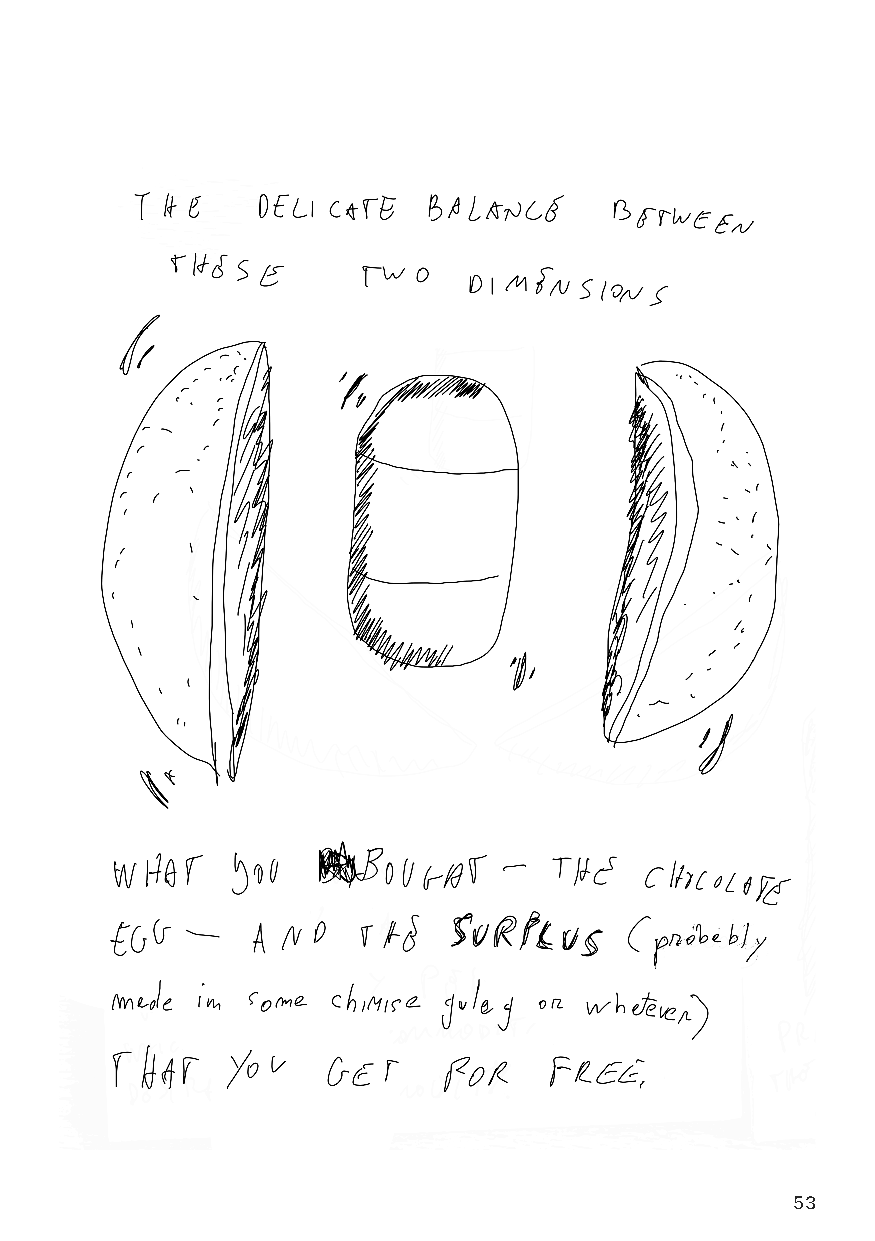 THE DELICATE BALANCE BETWEEN
THESE TWO DIMENSIONS
WHAT YOU BOUGHT — THE CHICOLATE
EGG — AND THE SURPLUS (probebly
mede in some chinise guleg or whetever)
THAT YOU GET FOR FREE.
53